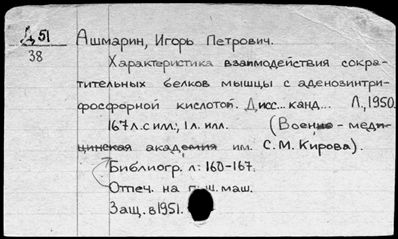 Д 51
38
Ашмарин, Игорь Петрович.
Характеристика взаимодействия сокра-
тительных белков мышцы с аденозинтри-
фосфорной кислотой. Дисс... канд... Л., 1950.
167 л. с илл.; 1 л. илл. (Военно-меди-
цинская академия им. С.М. Кирова).
Библиогр. л: 160-167.
Отпеч. на п. ш. маш.
Защ. в 1951.